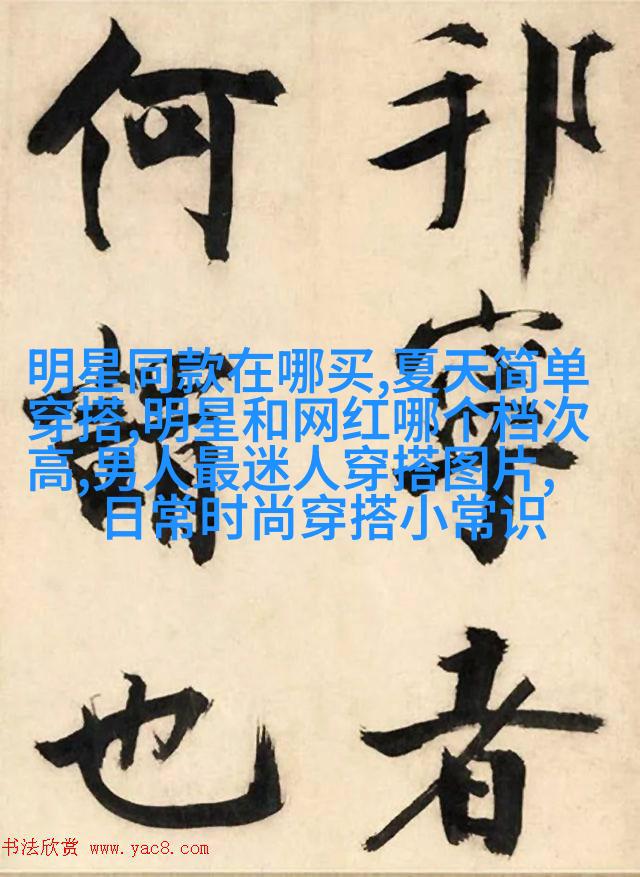 邦者
何也
明星同款在哪买,夏天简单
穿搭,明星和网红哪个档次
高,男人最迷人穿搭图片,
日常时尚穿搭小常识
书法欣赏 www.yac8.com